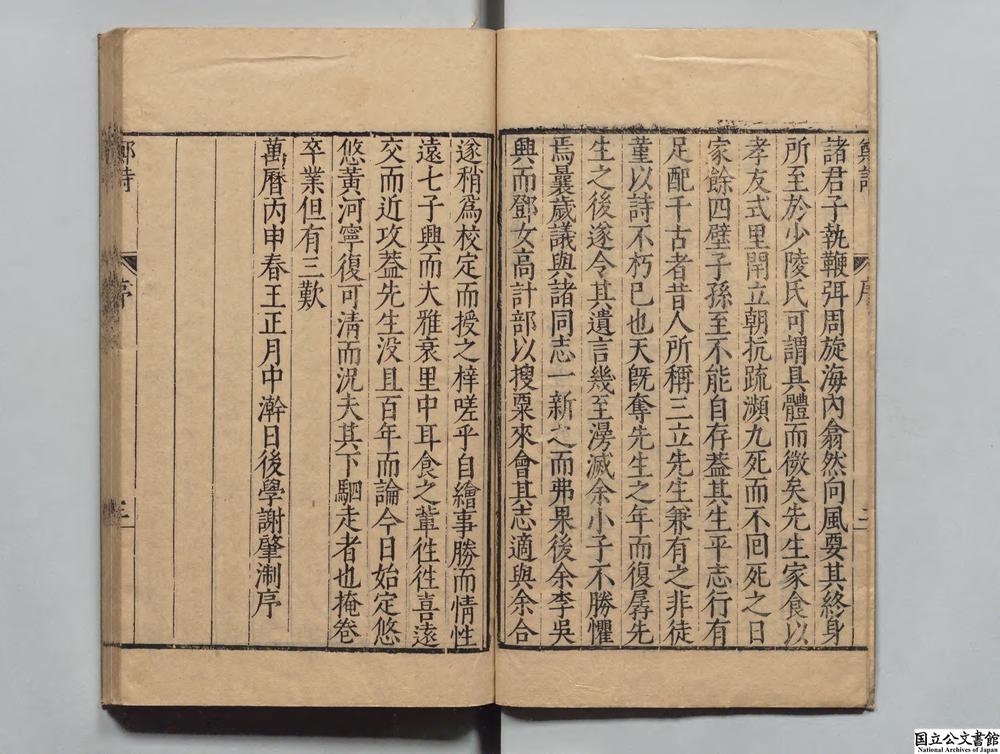 諸君子執鞭弭周旋海內翕然向風要其終身
所至於少陵氏可謂具體而微矣先生家食以
孝友式里閈立朝抗疏瀕九死而不回死之日
家餘四壁子孫至不能自存葢其生平志行有
足配千古者昔人所稱三立先生兼有之非徒
董以詩不朽已也天旣奪先生之年而復孱先
生之後遂令其遺言幾至漫滅余小子不勝懼
焉曩歲議與諸同志一新之而弗果後余李吳
興而鄧女高計部以搜粟來會其志適與余合
遂稍爲校定而授之梓嗟乎自繪事勝而情性
遠七子興而大雅衰里中耳食之輩徃徃喜遠
交而近攻葢先生没且百年而論今日始定悠
悠黃河寧復可清而況夫其下駟走者也掩卷
卒業但有三歎
萬曆丙申春王正月中澣日後學謝肇淛序
鄭詩
序
三
鄭詩
序
二
国立公文書館
National Archives of Japan